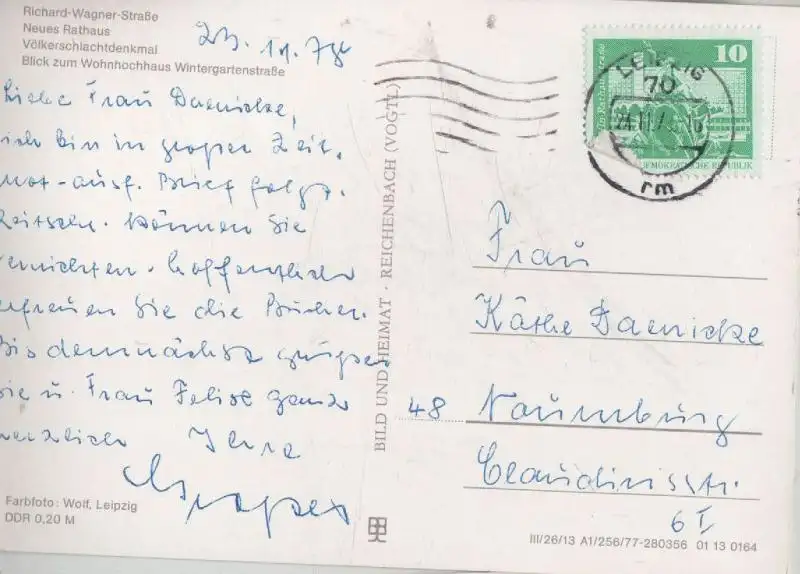 Richard-Wagner-Straße
Neues Rathaus
Völkerschlachtdenkmal
Blick zum Wohnhochhaus Wintergartenstraße
Liebe Frau Daenicke,
ich bin in großer Zeit-
not - ausf. Brief folgt.
Zeitschr. können Sie
vernichten. Hoffentlich
erfreuen Sie die Bücher.
Bis demnächst grüßen
Sie u. Frau Felixe ganz
herzlich Ihre
Farbfoto: Wolf, Leipzig
DDR 0,20 M
BILD UND HEIMAT · REICHENBACH (VOGTL)
10
DEMOKRATISCHE REPUBLIK
LEIPZIG
70
rm
Frau
Käthe Daenicke
48 Naumburg
Claudiusstr.
6 I
III/26/13 A1/256/77-280356 01 13 0164